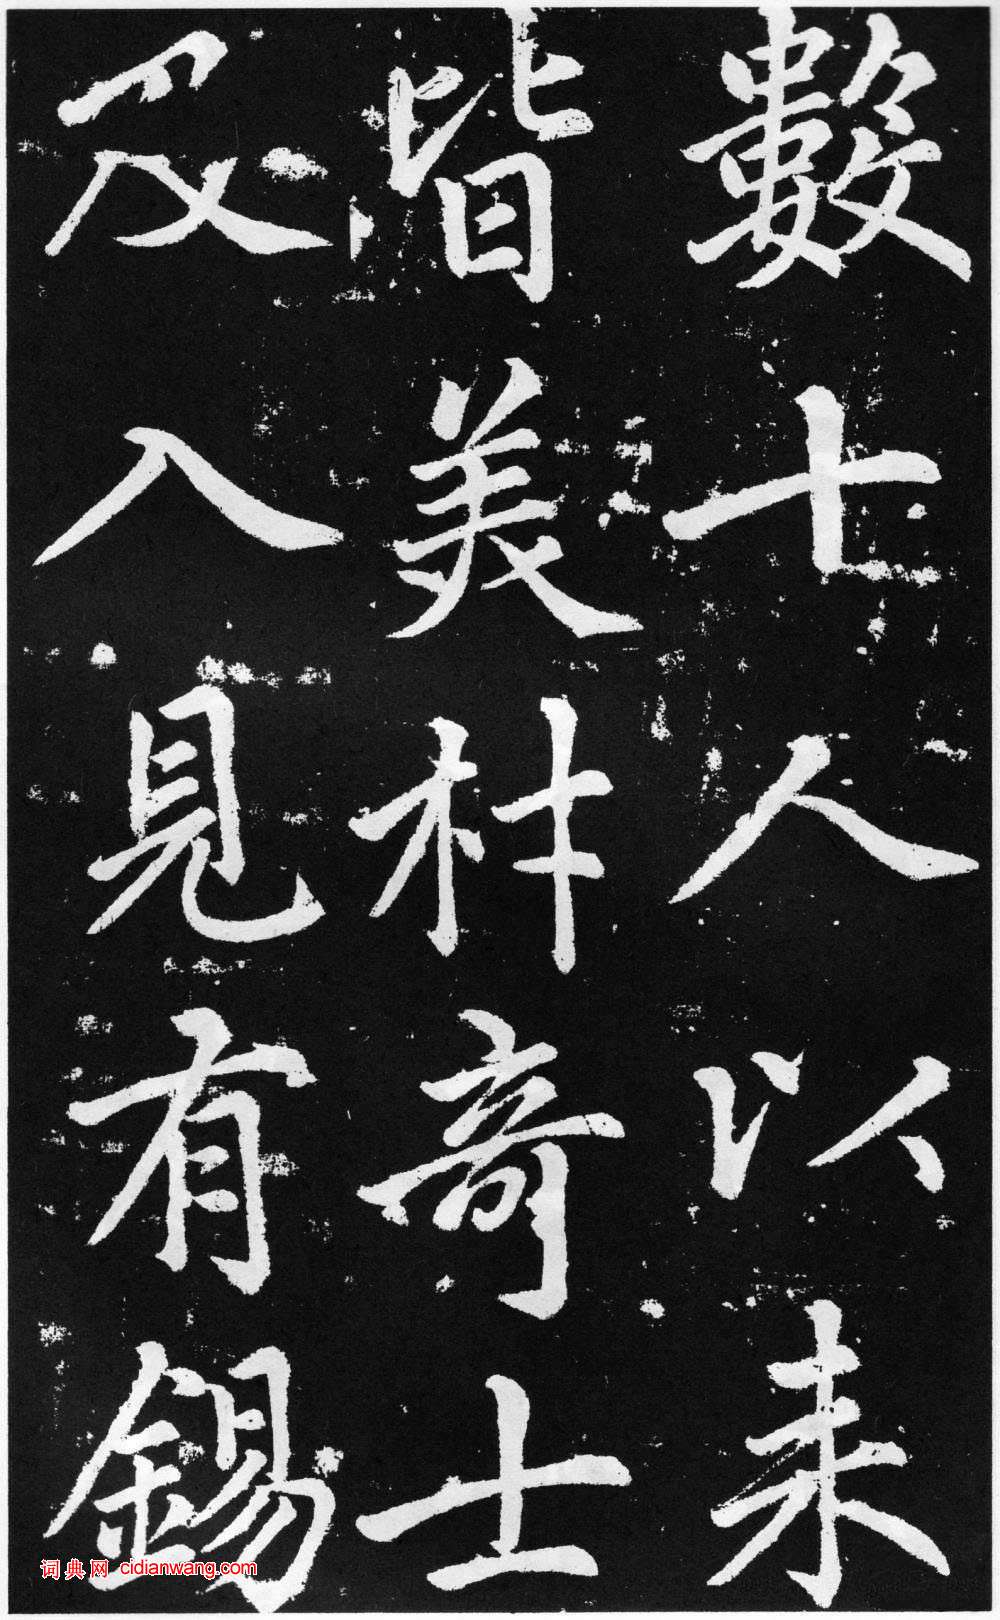 數十人以来
皆美材奇士
及入見有錫
词典网 cidianwang.com